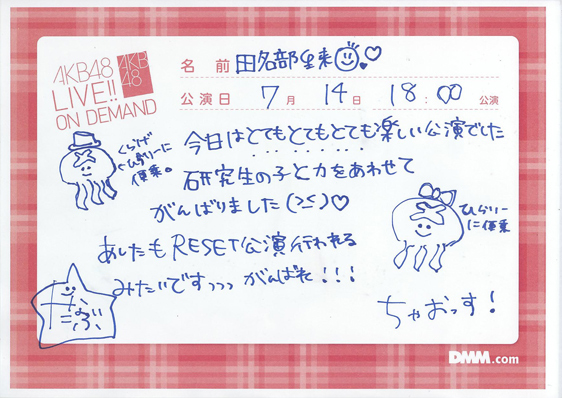 AKB48
LIVE!!
ON DEMAND
AKB
48
名 前 田名部生来
公演日 7月 14日 18:00 公演
今日はとてもとてもとても楽しい公演でした
研究生の子と力をあわせて
がんばりました(>≦)♡
あしたもRESET公演行われる
みたいですっっっ がんばれ!!!
ちゃおっす!
くらげ
ひらりーに
便乗。
ひらりー
に便乗
DMM.com